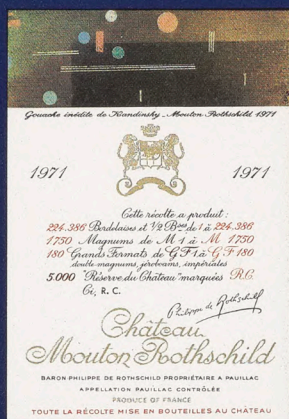 Gouache inédite de Kandinsky - Mouton Rothschild 1971
1971 1971
Cette récolte a produit :
224.386 Bordelaises et ½ Bses de 1 à 224.386
1750 Magnums de M 1 à M 1750
180 Grands Formats de G F 1 à G F 180
double magnums, jéroboams, impériales
5.000 "Réserve du Château" marquées R.C.
Ci, R. C.
Philippe de Rothschild
Château
Mouton Rothschild
BARON PHILIPPE DE ROTHSCHILD PROPRIÉTAIRE A PAUILLAC
APPELLATION PAUILLAC CONTRÔLÉE
PRODUCE OF FRANCE
TOUTE LA RÉCOLTE MISE EN BOUTEILLES AU CHÂTEAU